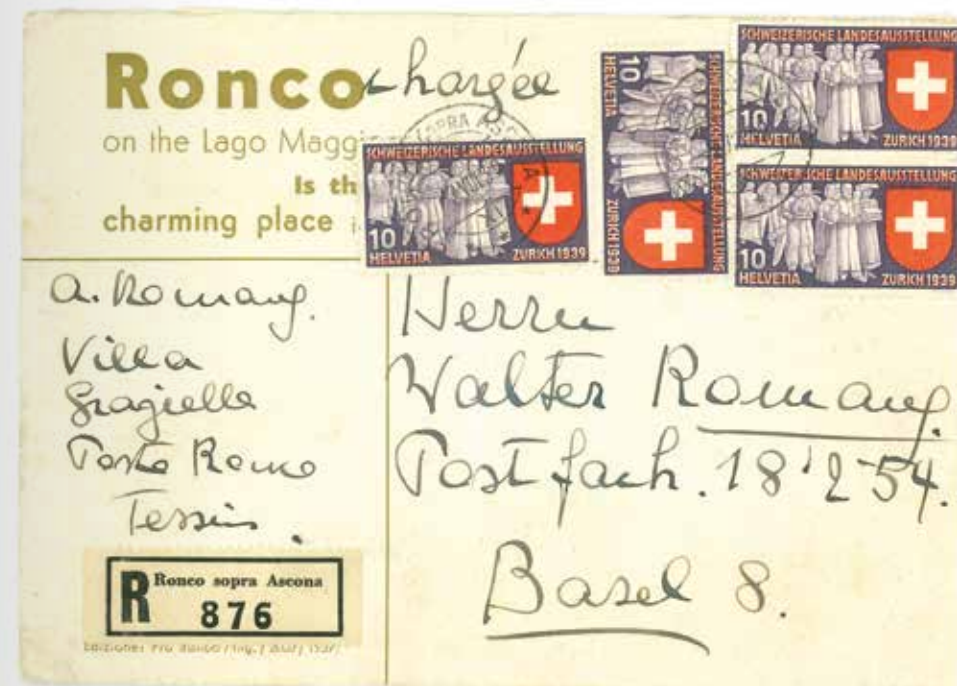 Ronco
chargée
on the Lago Magg
Is th
charming place
SCHWEIZERISCHE LANDESAUSSTELLUNG
10
HELVETIA ZURICH 1939
SCHWEIZERISCHE LANDESAUSSTELLUNG
10
HELVETIA
ZURICH 1939
SCHWEIZERISCHE LANDESAUSSTELLUNG
10
HELVETIA ZURICH 1939
SCHWEIZERISCHE LANDESAUSSTELLUNG
10
HELVETIA ZURICH 1939
A. Romang.
Villa
Graziella
Porto Ronco
Tessin.
R Ronco sopra Ascona
876
Herrn
Walter Romang.
Postfach. 18'254.
Basel 8.